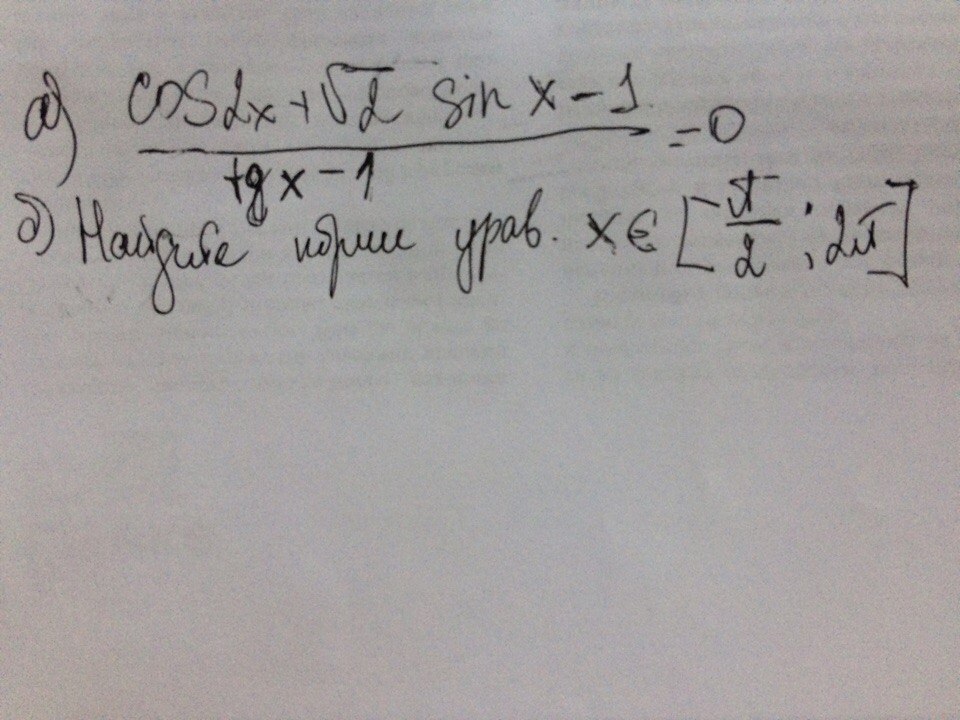 а) (cos2x + √2 sin x − 1) / (tg x − 1) = 0
б) Найдите корни урав. x ∈ [π/2 ; 2π]